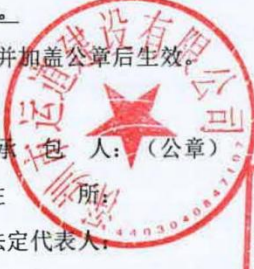 并加盖公章后生效。
承 包 人：（公章）
所：
法定代表人：
深圳市运通建设有限公司
4403040847107